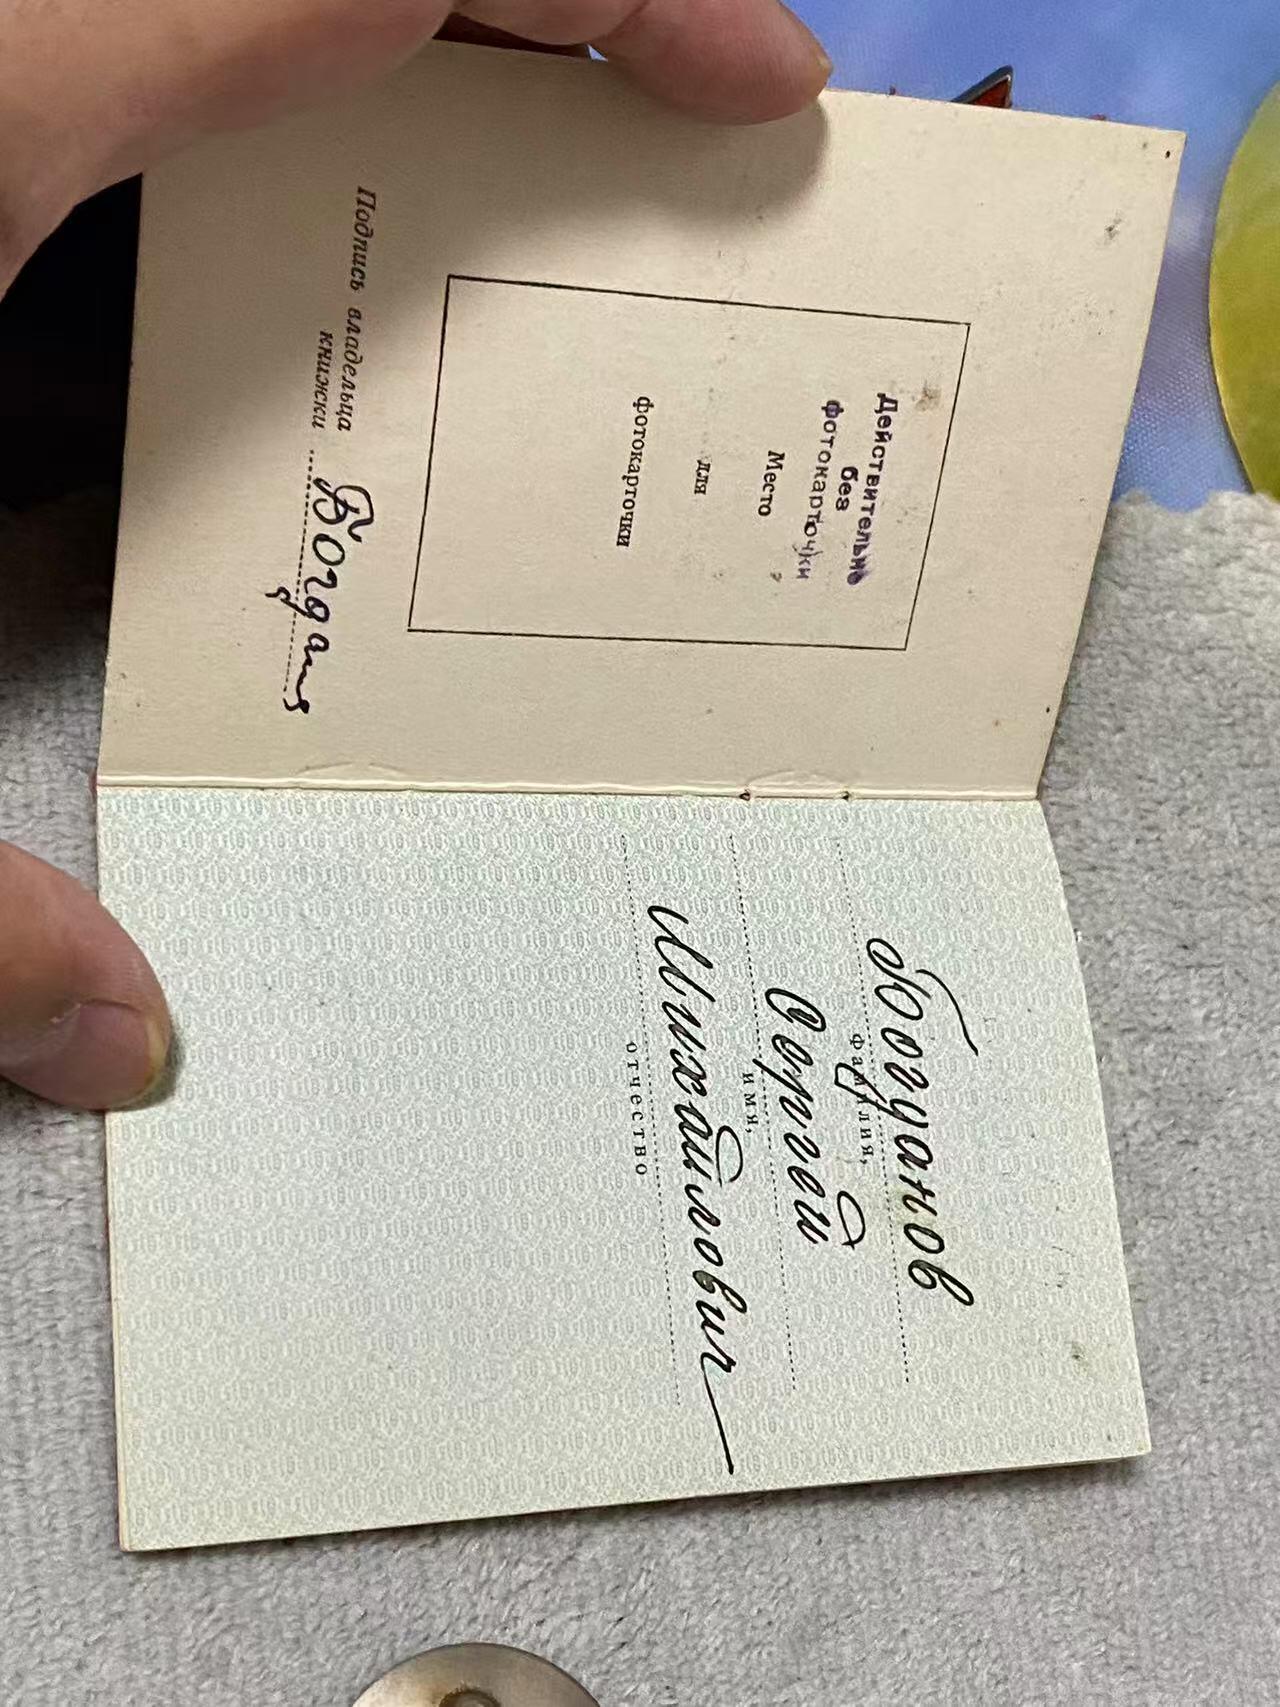 Действительно
без
фотокарточки
Место
для
фотокарточки
Подпись владельца
книжки Богдан
Богданов
фамилия,
Сергей
имя,
Михайлович
отчество